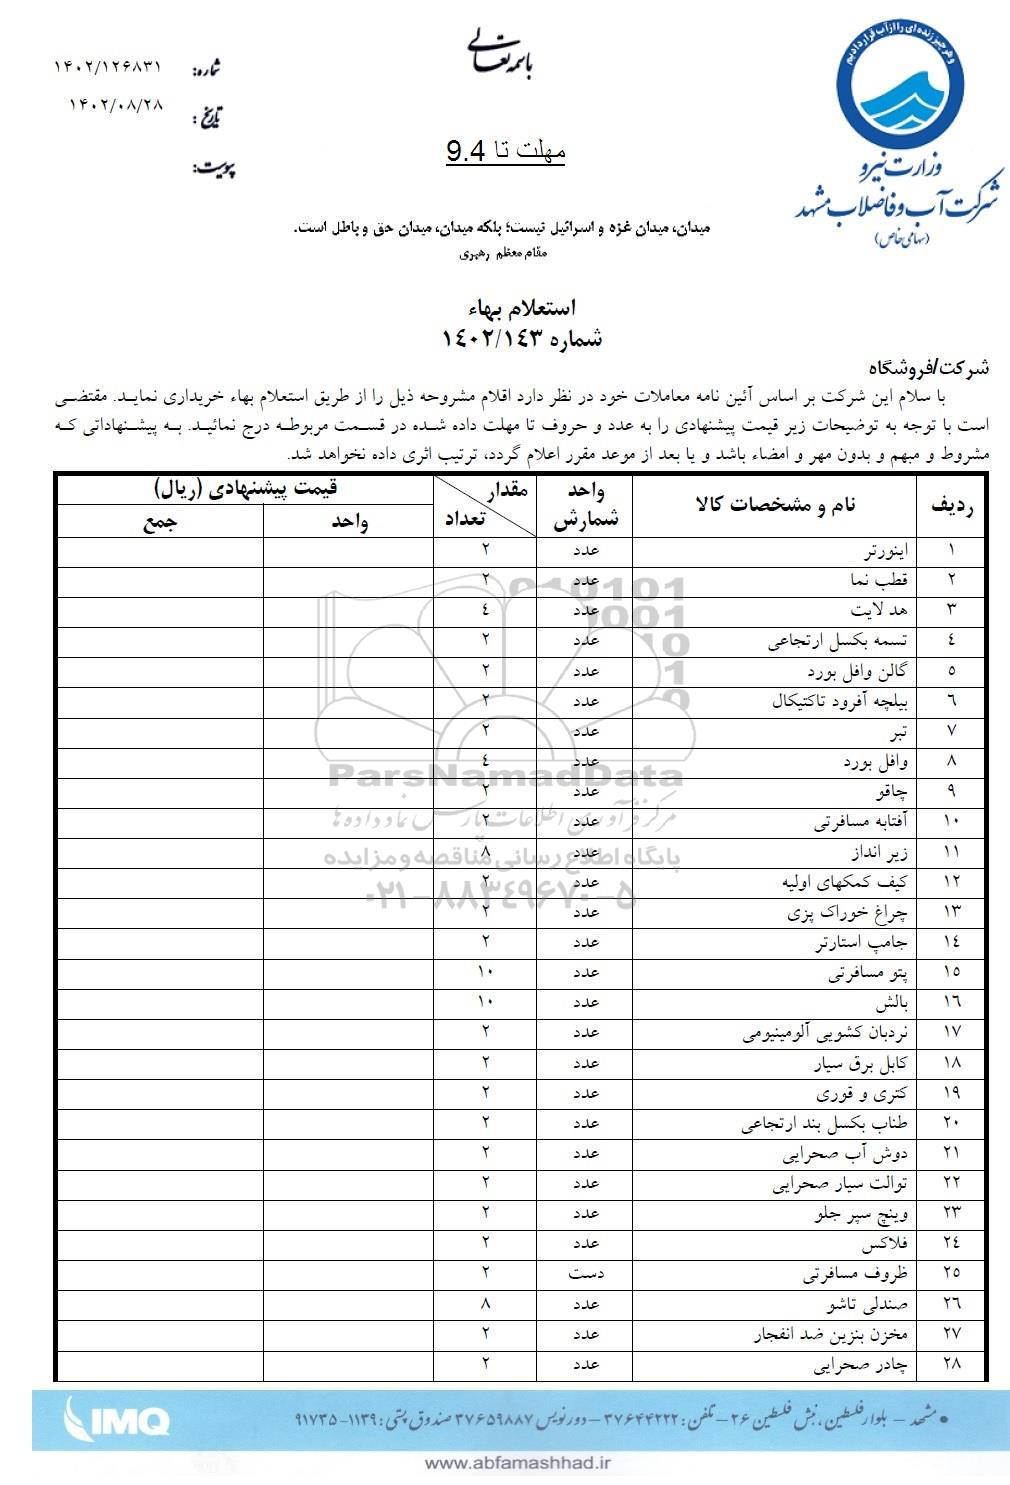 باسمه تعالی
و هر چیز زنده ای را از آب قرار دادیم
وزارت نیرو
شرکت آب و فاضلاب مشهد
(سهامی خاص)
شماره: ۱۴۰۲/۱۲۶۸۳۱
تاریخ: ۱۴۰۲/۰۸/۲۸
پیوست:
مهلت تا 9.4
میدان، میدان غزه و اسرائیل نیست؛ بلکه میدان، میدان حق و باطل است.
مقام معظم رهبری
استعلام بهاء
شماره ۱٤۰۲/۱٤۳
شرکت/فروشگاه
با سلام این شرکت بر اساس آئین نامه معاملات خود در نظر دارد اقلام مشروحه ذیل را از طریق استعلام بهاء خریداری نماید. مقتضی
است با توجه به توضیحات زیر قیمت پیشنهادی را به عدد و حروف تا مهلت داده شده در قسمت مربوطه درج نمائید. به پیشنهاداتی که
مشروط و مبهم و بدون مهر و امضاء باشد و یا بعد از موعد مقرر اعلام گردد، ترتیب اثری داده نخواهد شد.
ردیف نام و مشخصات کالا واحد شمارش مقدار تعداد قیمت پیشنهادی (ریال)
واحد جمع
۱ اینورتر عدد ۲
۲ قطب نما عدد ۲
۳ هد لایت عدد ٤
٤ تسمه بکسل ارتجاعی عدد ۲
٥ گالن وافل بورد عدد ۲
٦ بیلچه آفرود تاکتیکال عدد ۲
۷ تبر عدد ۲
۸ وافل بورد عدد ٤
۹ چاقو عدد ۲
۱۰ آفتابه مسافرتی عدد ۲
۱۱ زیر انداز عدد ۸
۱۲ کیف کمکهای اولیه عدد ۲
۱۳ چراغ خوراک پزی عدد ۲
۱٤ جامپ استارتر عدد ۲
۱٥ پتو مسافرتی عدد ۱۰
۱٦ بالش عدد ۱۰
۱۷ نردبان کشویی آلومینیومی عدد ۲
۱۸ کابل برق سیار عدد ۲
۱۹ کتری و قوری عدد ۲
۲۰ طناب بکسل بند ارتجاعی عدد ۲
۲۱ دوش آب صحرایی عدد ۲
۲۲ توالت سیار صحرایی عدد ۲
۲۳ وینچ سپر جلو عدد ۲
۲٤ فلاکس عدد ۲
۲٥ ظروف مسافرتی دست ۲
۲٦ صندلی تاشو عدد ۸
۲۷ مخزن بنزین ضد انفجار عدد ۲
۲۸ چادر صحرایی عدد ۲
ParsNamadData
مرکز فرآوری اطلاعات پارس نماد داده ها
پایگاه اطلاع رسانی مناقصه و مزایده
۰۲۱-۸۸۳٤۹٦۷۰-۵
• مشهد - بلوار فلسطین، نبش فلسطین ۲۶ - تلفن: ۳۷۶۴۴۲۲۲ - دورنویس ۳۷۶۵۹۸۸۷ صندوق پستی: ۱۱۳۹-۹۱۷۳۵
IMQ
www.abfamashhad.ir